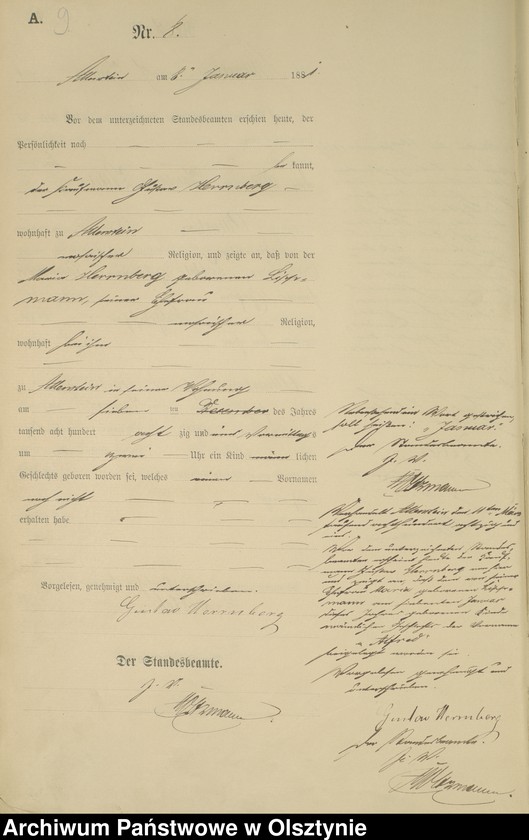 A. 9
Nr. 8.
Allenstein am 8 Januar 1881
Vor dem unterzeichneten Standesbeamten erschien heute, der
Persönlichkeit nach
kannt,
der Kaufmann Gustav Herrnberg
wohnhaft zu Allenstein
mosaischer Religion, und zeigte an, daß von der
Maria Herrnberg geborenen
mann, seiner Ehefrau
mosaischer Religion,
wohnhaft bei ihm
zu Allenstein in seiner Wohnung
am sieben ten Dezember des Jahres
tausend acht hundert acht zig und eins Vormittags
um zwei Uhr ein Kind männ lichen
Geschlechts geboren worden sei, welches einen Vornamen
noch nicht
erhalten habe
Vorgelesen, genehmigt und unterschrieben.
Gustav Herrnberg
Der Standesbeamte.
J. V.
Nebenstehend ein Wort gestrichen,
soll heißen: „Januar“
Der Standesbeamte.
J. V.
Verhandelt Allenstein den 11ten März
tausend achthundert achtzig und
eins.
Vor dem unterzeichneten Standes-
beamten erscheint heute der Kauf-
mann Gustav Herrnberg
und zeigt an, daß dem von seiner
Ehefrau Maria geborenen
mann am siebenten Januar
dieses Jahres geborenen Kinde
männlichen Geschlechts der Vorname
„Alfred“
beigelegt worden sei.
Vorgelesen genehmigt und
unterschrieben.
Gustav Herrnberg
Der Standesbeamte.
J. V.
Archiwum Państwowe w Olsztynie